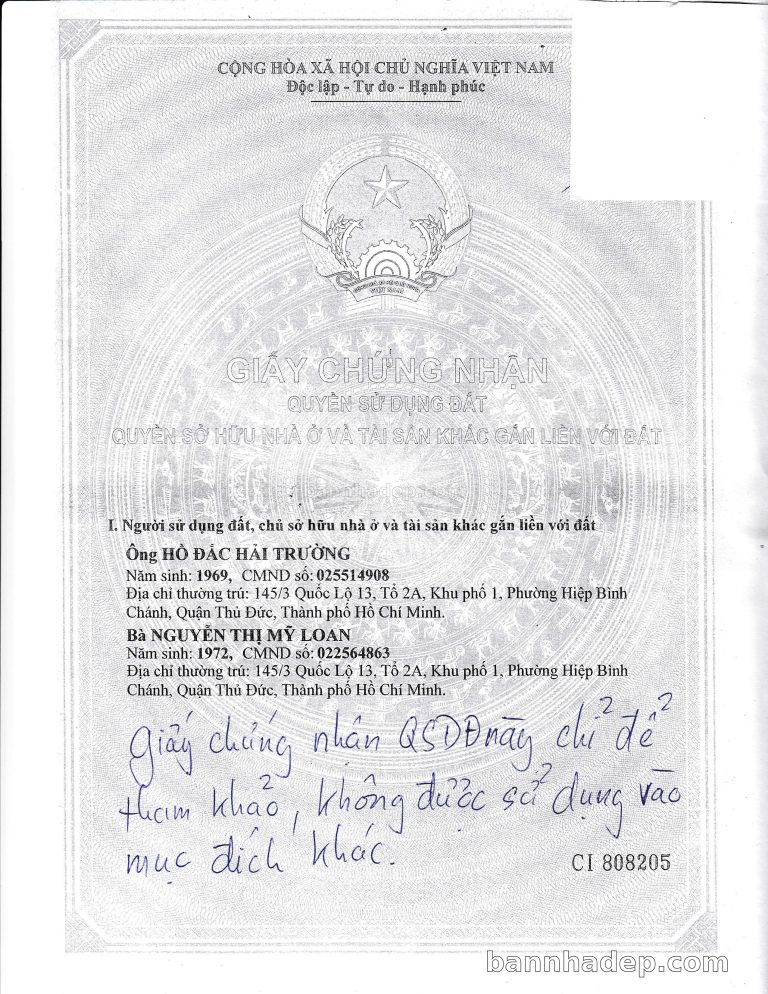 CỘNG HÒA XÃ HỘI CHỦ NGHĨA VIỆT NAM
Độc lập - Tự do - Hạnh phúc
VIỆT NAM
GIẤY CHỨNG NHẬN
QUYỀN SỬ DỤNG ĐẤT
QUYỀN SỞ HỮU NHÀ Ở VÀ TÀI SẢN KHÁC GẮN LIỀN VỚI ĐẤT
I. Người sử dụng đất, chủ sở hữu nhà ở và tài sản khác gắn liền với đất
Ông HỒ ĐẮC HẢI TRƯỜNG
Năm sinh: 1969, CMND số: 025514908
Địa chỉ thường trú: 145/3 Quốc Lộ 13, Tổ 2A, Khu phố 1, Phường Hiệp Bình
Chánh, Quận Thủ Đức, Thành phố Hồ Chí Minh.
Bà NGUYỄN THỊ MỸ LOAN
Năm sinh: 1972, CMND số: 022564863
Địa chỉ thường trú: 145/3 Quốc Lộ 13, Tổ 2A, Khu phố 1, Phường Hiệp Bình
Chánh, Quận Thủ Đức, Thành phố Hồ Chí Minh.
Giấy chứng nhận QSDĐ này chỉ để
tham khảo, không được sử dụng vào
mục đích khác.
CI 808205
bannhadep.com